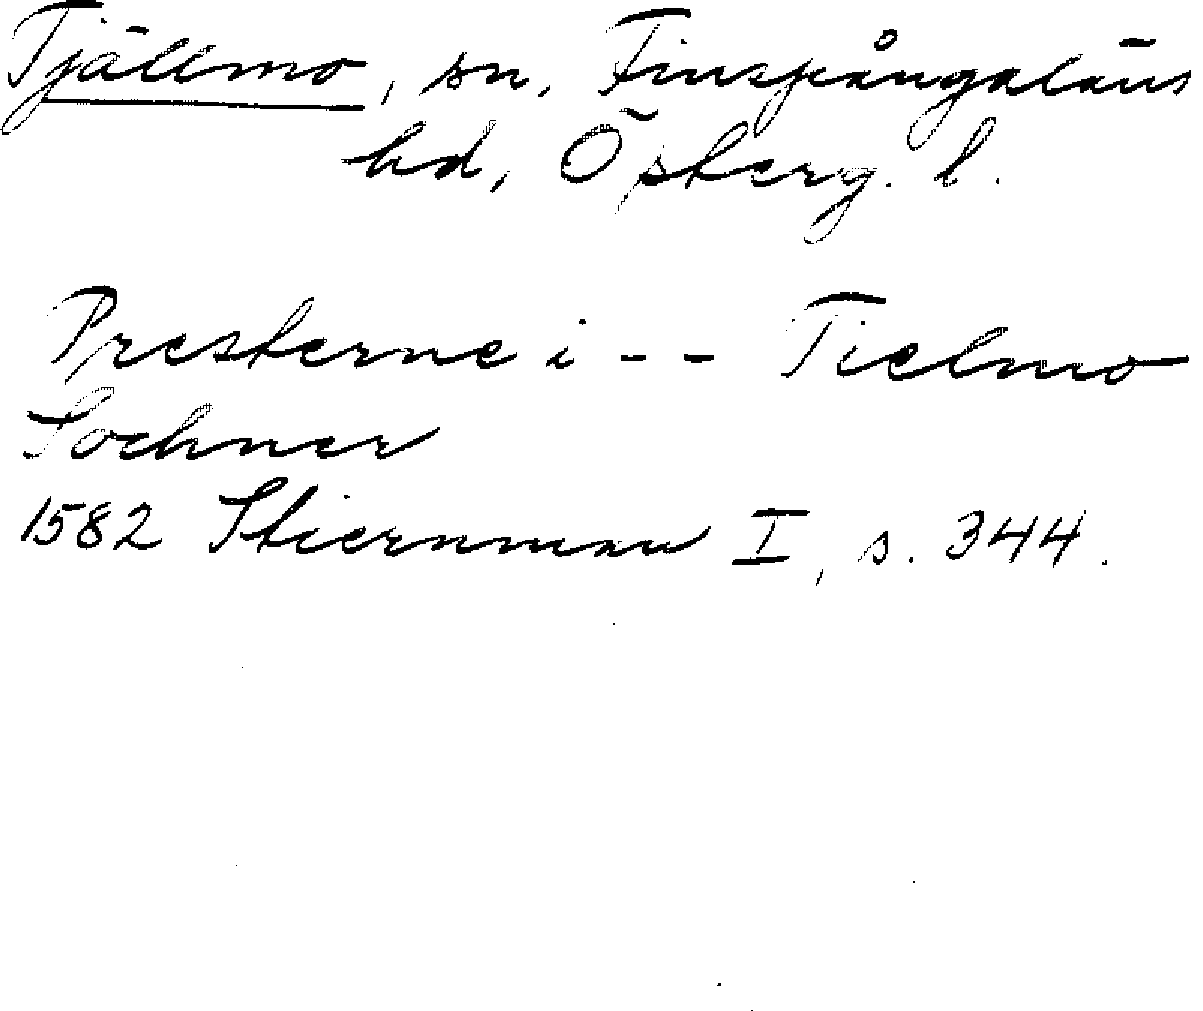 Tjällmo, sn, Finspångaläns
hd, Österg. l.
Presterne i -- Tielmo
Sochner
1582 Stiernman I, s. 344.